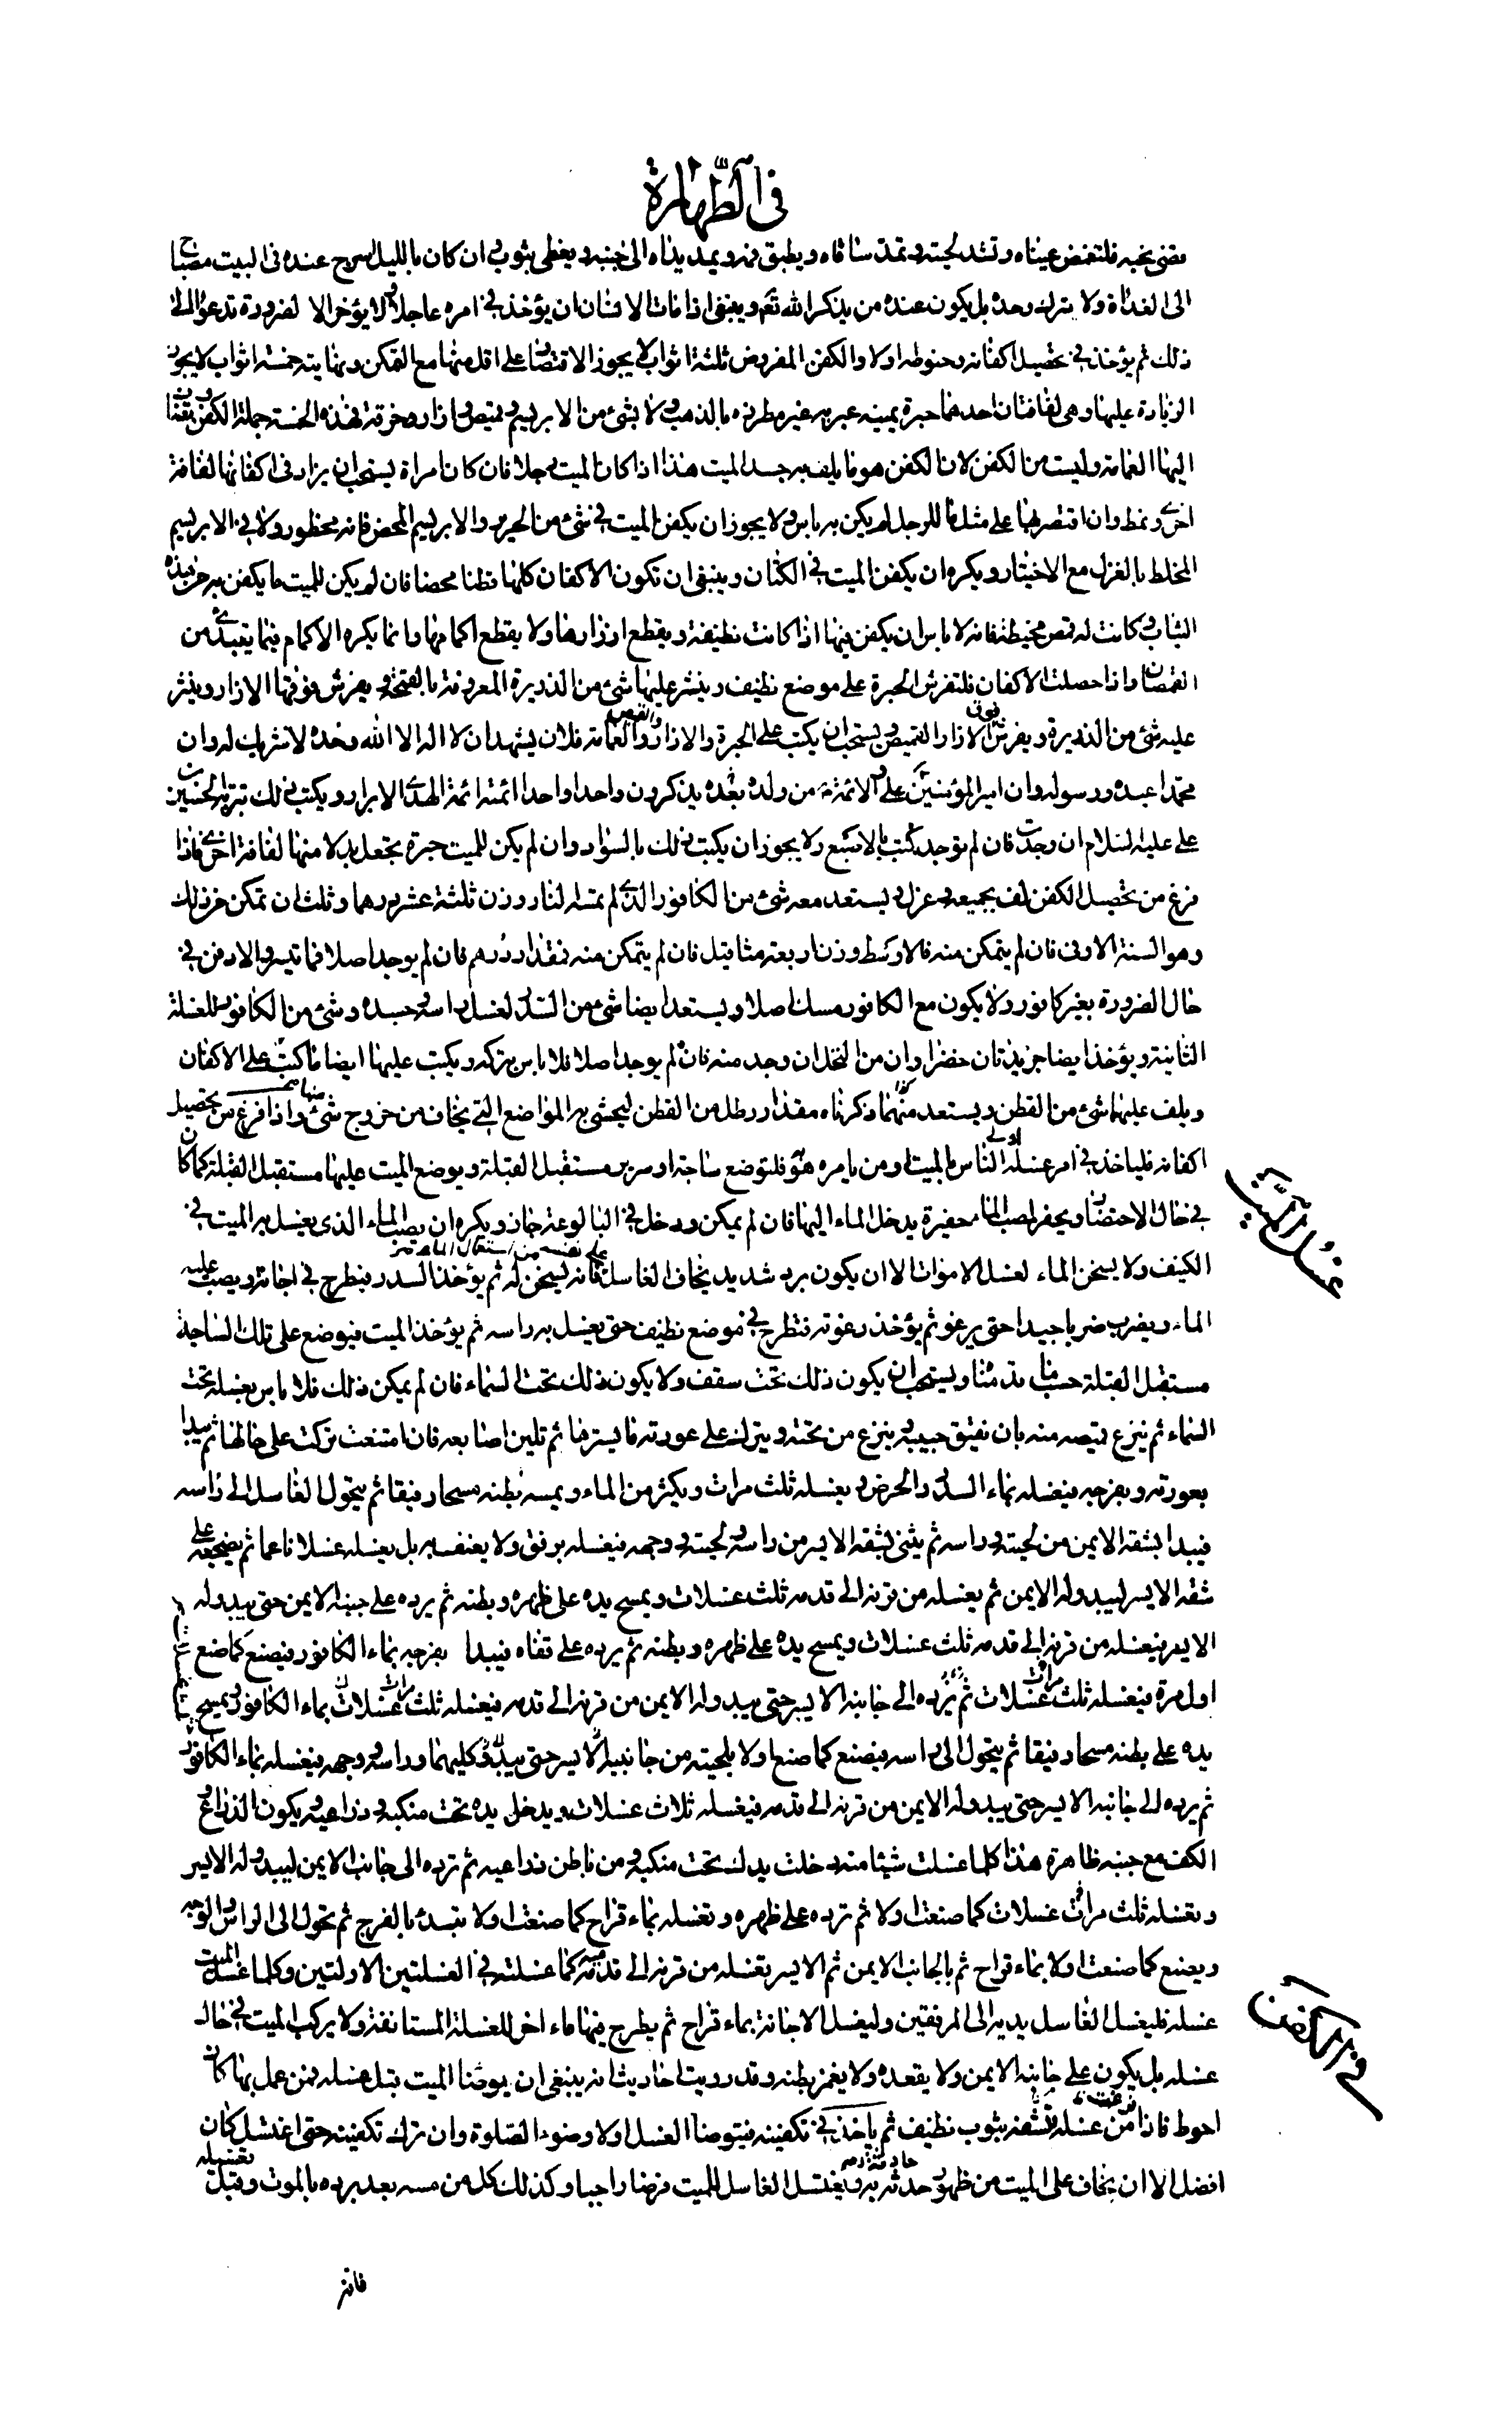 في الطهارة
قضى نحبه فلتغمض عيناه وتشد لحيته وتمد ساقاه ويطبق فوه ويمد يداه الى جنبيه ويغطى بثوب وان كان بالليل اسرج عنده في البيت مصباح
الى الغداة ولا يترك وحده بل يكون عنده من يذكر الله تعم وينبغى اذا مات الانسان ان يؤخذ في امره عاجلا ولا يؤخر الا لضرورة تدعو الى
ذلك ثم يؤخذ في تحصيل اكفانه وحنوطه اولا والكفن المفروض ثلثة اثواب لا يجوز الاقتصار على اقل منها مع التمكن ونهايته خمسة اثواب لا يجوز
الزيادة عليها وهى لفافتان احدهما حبرة يمنية عبرية غير مطرزه بالذهب ولا بشئ من الابريسم وقميص وازار وخرقة فهذه الخمسة جملة الكفن ويضاف
اليها العمامة وليست من الكفن لان الكفن هو ما يلف به جسد الميت هذا اذا كان الميت رجلا فان كان امراة يستحب ان يزاد فى اكفانها لفافة
اخرى ونمط وان اقتصر بها على مثل ما للرجل لم يكن به باس ولا يجوز ان يكفن الميت في شئ من الحرير والابريسم المحض فانه محظور ولا في الابريسم
المخلط بالغزل مع الاختيار ويكره ان يكفن الميت في الكتان وينبغى ان تكون الاكفان كلها قطنا محضا فان لم يكن للميت ما يكفن به من هذه
الثياب وكانت له قمص مخيطة فانه لا باس ان يكفن فيها اذا كانت نظيفة ويقطع ازرارها ولا يقطع اكمامها وانما يكره الاكمام فيما يبتدئ من
القمصان واذا حصلت الاكفان فلتفرش الحبرة على موضع نظيف وينثر عليها شئ من الذريرة المعروفة بالقمحة ويفرش فوقها الازار وينثر
عليه شئ من الذريرة ويفرش فوق الازار القميص ويستحب ان يكتب على الحبرة والازار والقميص والعمامة فلان يشهد ان لا اله الا الله وحده لا شريك له وان
محمدا عبده ورسوله وان امير المؤمنين على والائمة من ولده بعده يذكرون واحدا واحدا ائمته ائمة الهدى الابرار ويكتب ذلك بتربة الحسين بن
على عليه السلام ان وجدت فان لم توجد كتب بالاصبع ولا يجوز ان يكتب ذلك بالسواد وان لم يكن للميت حبرة يجعل بدلا منها لفافة اخرى فاذا
فرغ من تحصيل الكفن لف بجميعه وعزل ويستعد معه شئ من الكافور الذى لم تمسه النار وزن ثلثة عشر درهما وثلث ان تمكن من ذلك
وهو السنة الاوفى فان لم يتمكن منه فالاوسط وزن اربعة مثاقيل فان لم يتمكن منه فمقدار درهم فان لم يوجد اصلا فما تيسر والا دفن في
حال الضرورة بغير كافور ولا يكون مع الكافور مسك اصلا ويستعد ايضا شئ من السدر لغسل راسه وجسده وشئ من الكافور للغسلة
الثانية ويؤخذ ايضا جريدتان خضراوان من النخل ان وجد منه فان لم يوجد اصلا فلا باس بتركه ويكتب عليها ايضا ما كتب على الاكفان
ويلف عليها شئ من القطن ويستعد منهما ذكرناه مقدار رطل من القطن ليحشى به المواضع التي يخاف من خروج شئ منها واذا فرغ من تحصيل
اكفانه فلياخذ في امر غسله اولى الناس بالميت او من يامره هو فلتوضع ساجة او سرير مستقبل القبلة ويوضع الميت عليها مستقبل القبلة كما كان
في حال الاحتضار ويحفر لمصب الماء حفيرة يدخل الماء اليها فان لم يمكن ودخل في البالوعة جاز ويكره ان يصب الماء الذى يغسل به الميت في
الكنيف ولا يسخن الماء لغسل الاموات الا ان يكون برد شديد يخاف الغاسل على نفسه من استعمال الماء فانه يسخن له ثم يؤخذ السدر فيطرح في اجانة ويصب عليه
الماء ويضرب ضربا جيدا حتى يرغو ثم يؤخذ رغوته فتطرح في موضع نظيف حتى يغسل به راسه ثم يؤخذ الميت فيوضع على تلك الساجة
مستقبل القبلة حسب ما قدمنا ويستحب ان يكون ذلك تحت سقف ولا يكون ذلك تحت السماء فان لم يمكن ذلك فلا باس بغسله تحت
السماء ثم ينزع قميصه منه بان يفتق جيبه وينزع من تحته ويترك على عورته ما يسترها ثم تلين اصابعه فان امتنعت تركت على حالها ثم يبدا
بعورته وبفرجه فيغسله بماء السدر والحرض ويغسله ثلث مرات ويكثر من الماء ويمسح بطنه مسحا رفيقا ثم يتحول الغاسل الى راسه
فيبدا بشقه الايمن من لحيته وراسه ثم يثنى بشقه الايسر من راسه ولحيته ووجهه فيغسله برفق ولا يعنف به بل يغسله غسلا ناعما ثم يضجعه على
شقه الايسر ليبدو له الايمن ثم يغسله من قرنه الى قدمه ثلث غسلات ويمسح يده على ظهره وبطنه ثم يرده على جنبه الايمن حتى يبدو له
الايسر فيغسله من قرنه الى قدمه ثلث غسلات ويمسح يده على ظهره وبطنه ثم يرده على قفاه فيبدا بفرجه بماء الكافور فيصنع كما صنع
اول مرة فيغسله ثلث مرات غسلات ثم يرده الى جانبه الايسر حتى يبدو له الايمن من قرنه الى قدمه فيغسله ثلث مرات غسلات بماء الكافور ويمسح
يده على بطنه مسحا رفيقا ثم يتحول الى راسه فيصنع كما صنع اولا بلحيته من جانبيه كليهما وراسه ووجهه فيغسله بماء الكافور
ثم يرده الى جانبه الايسر حتى يبدو له الايمن من قرنه الى قدمه فيغسله ثلاث غسلات ويدخل يده تحت منكبه وذراعيه ويكون الذراع و
الكف مع جنبه ظاهرة هذا كلما غسلت شيئا منه دخلت يدك تحت منكبه ومن باطن ذراعيه ثم ترده الى جانبه الايمن ليبدو له الايسر
وتغسله ثلث مرات غسلات كما صنعت اولا ثم ترده على ظهره وتغسله بماء قراح كما صنعت اولا تبتدئ بالفرج ثم تحول الى الراس والوجه
ويصنع كما صنعت اولا بماء قراح ثم بالجانب الايمن ثم الايسر تغسله من قرنه الى قدمه كما غسلته في الغسلتين الاولتين وكلما غسل الميت
غسله فليغسل الغاسل يديه الى المرفقين وليغسل الاجانة بماء قراح ثم يطرح فيها ماء اخر للغسلة المستانفة ولا يركب الميت في حال
غسله بل يكون على جانبه الايمن ولا يقعده ولا يغمز بطنه وقد رويت احاديث انه ينبغى ان يوضا الميت قبل غسله فمن عمل بها كان
احوط فاذا فرغت من غسله نشفه بثوب نظيف ثم ياخذ في تكفينه فيتوضا الغسل اولا وضوء الصلوة وان ترك تكفينه حتى اغتسل كان
افضل الا ان يخاف على الميت من ظهور حادثة به ويغتسل الغاسل للميت فرضا واجبا وكذلك كل من مسه بعد برده بالموت وقبل تغسيله
فانه
غسل الميت
في الكفن